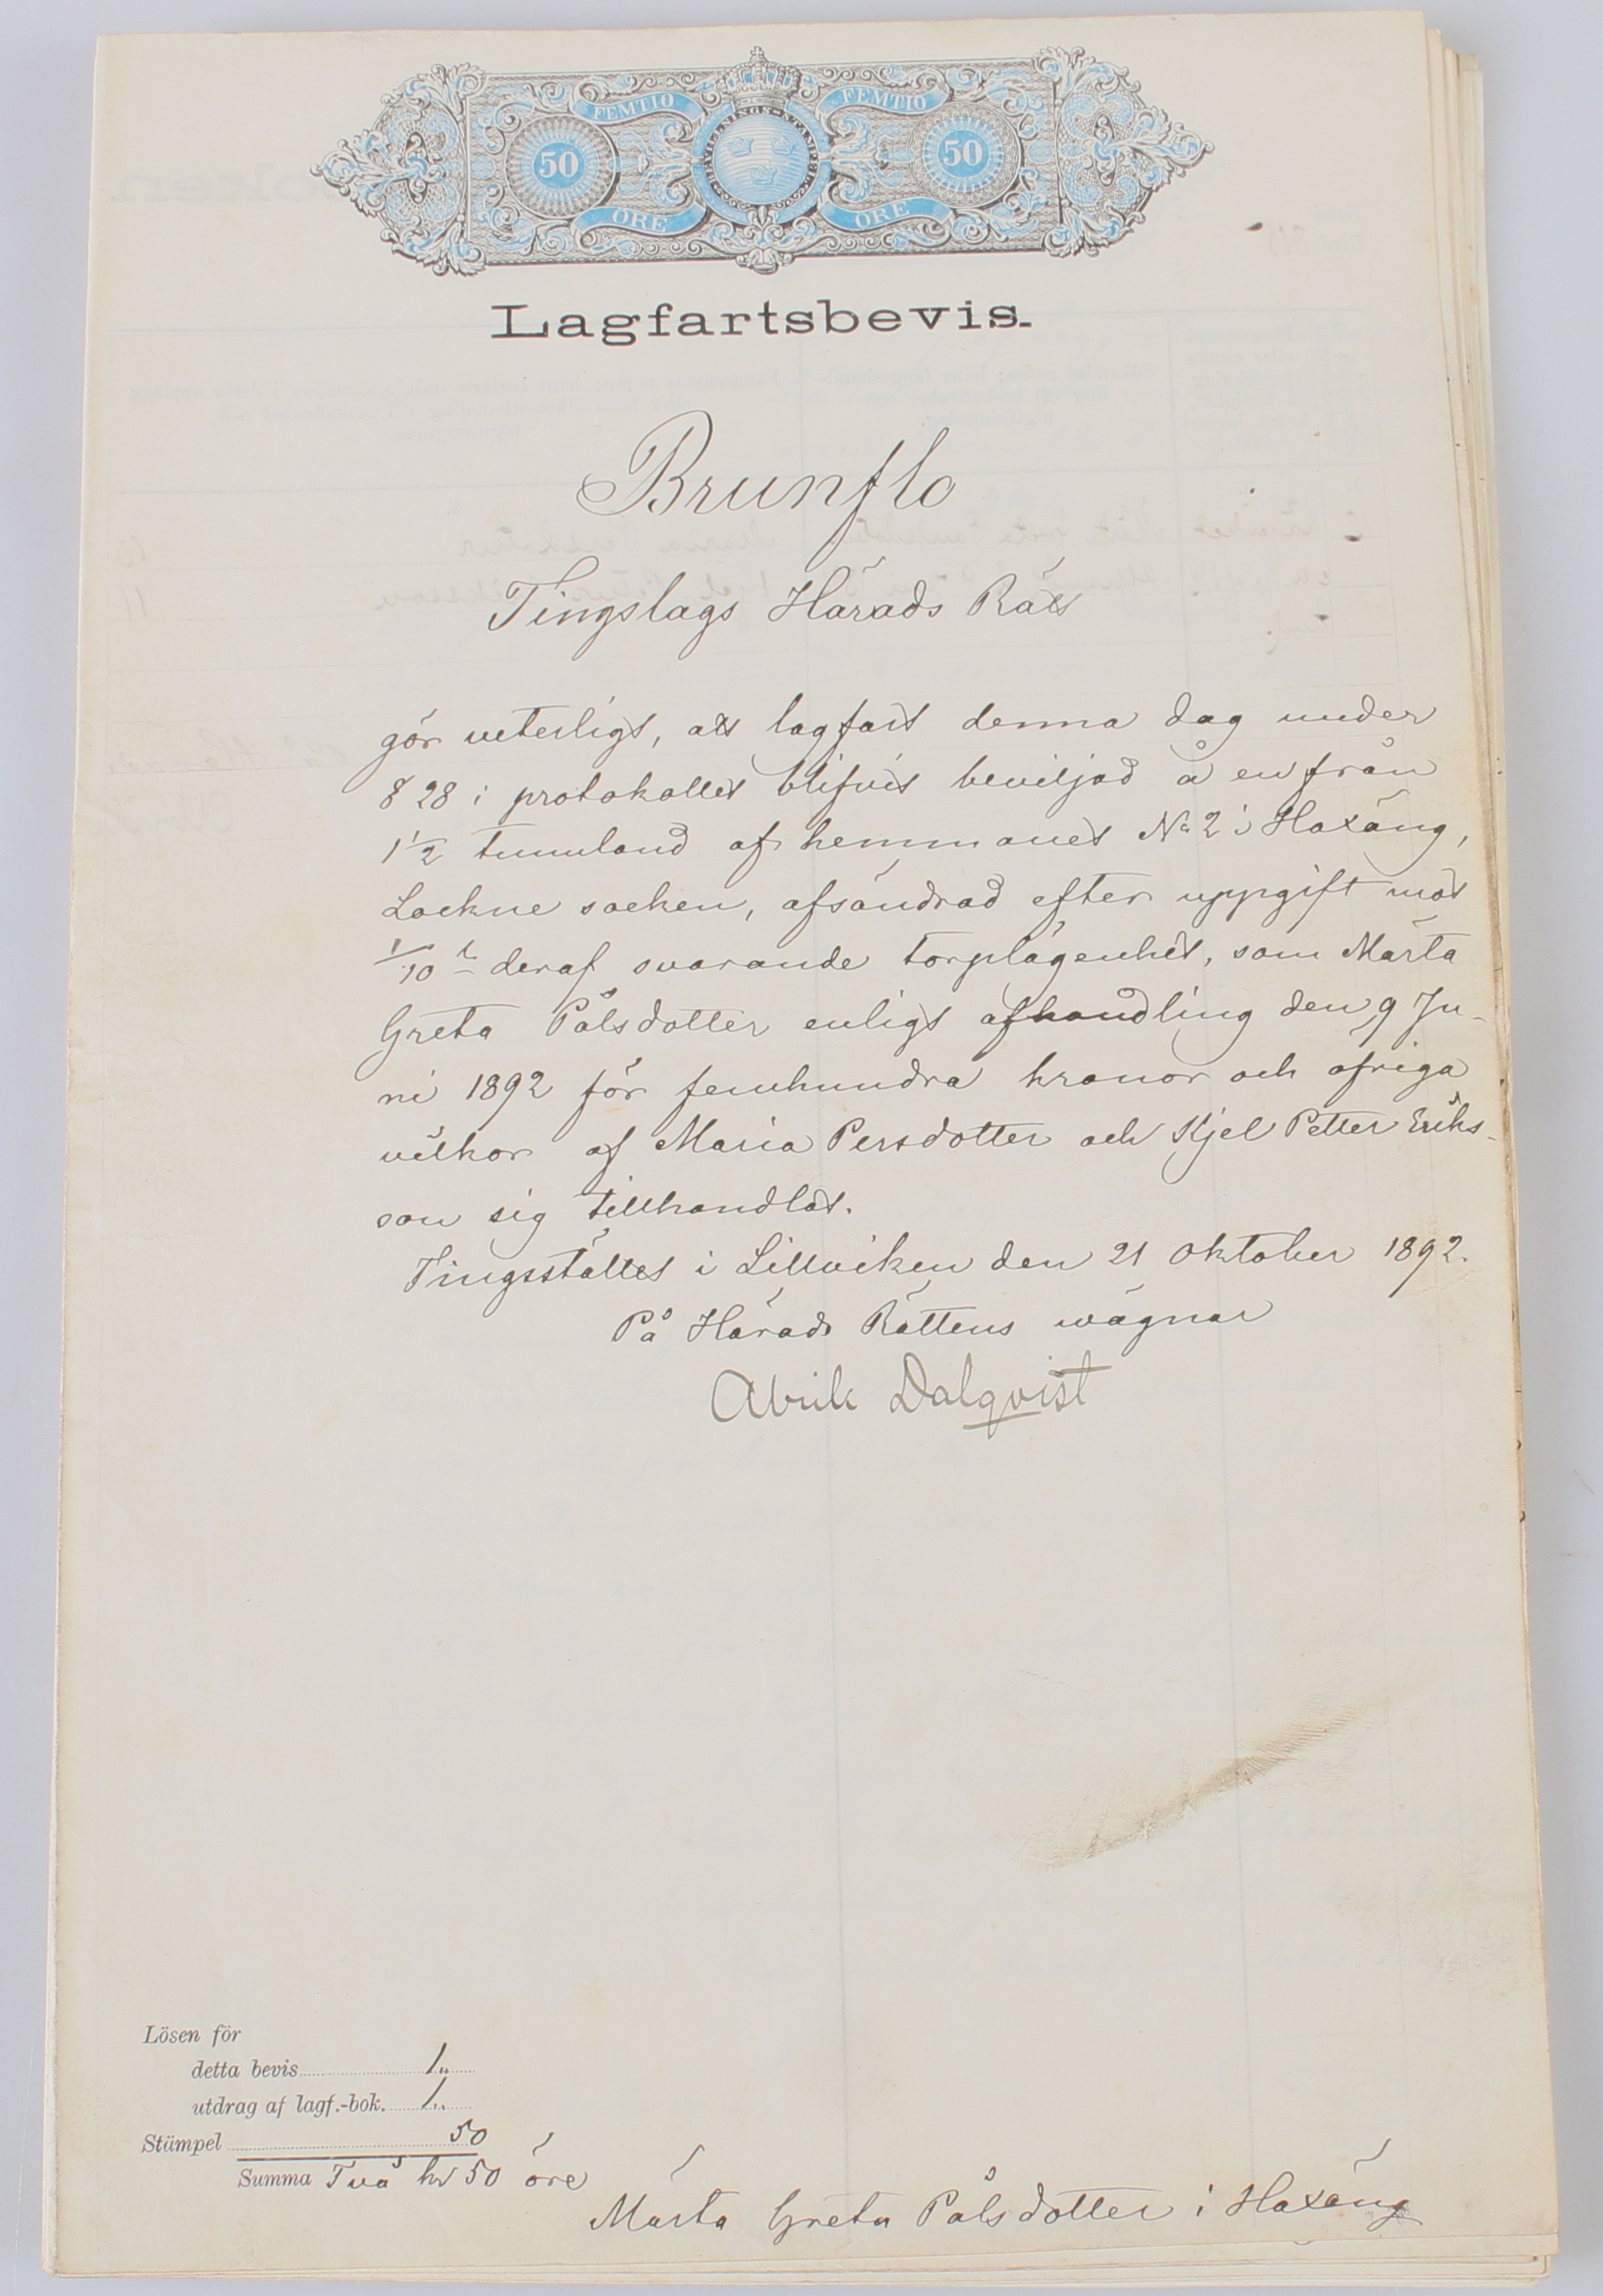 FEMTIO FEMTIO
50 50
BEVILLNINGS-STÄMPEL
ÖRE ÖRE
Lagfartsbevis.
Brunflo
Tingslags Härads Rätt
gör veterligt, att lagfart denna dag under
§ 28 i protokollet blifvit beviljad å en från
1 1/2 tunnland af hemmanet No 2 i Haxäng,
Lockne socken, afsöndrad efter uppgift mot
1/10 l deraf svarande torplägenhet, som Märta
Greta Pålsdotter enligt afhandling den 9 Ju-
ni 1892 för femhundra kronor och öfriga
vilkor af Maria Persdotter och Kjel Petter Eriks-
son sig tillhandlat.
Tingsstället i Lillviken den 21 Oktober 1892.
På Härads Rättens vägnar
Dalqvist
Lösen för
detta bevis 1 "
utdrag af lagf.-bok. 1 "
Stämpel 50
Summa Två kr 50 öre
Märta Greta Pålsdotter i Haxäng